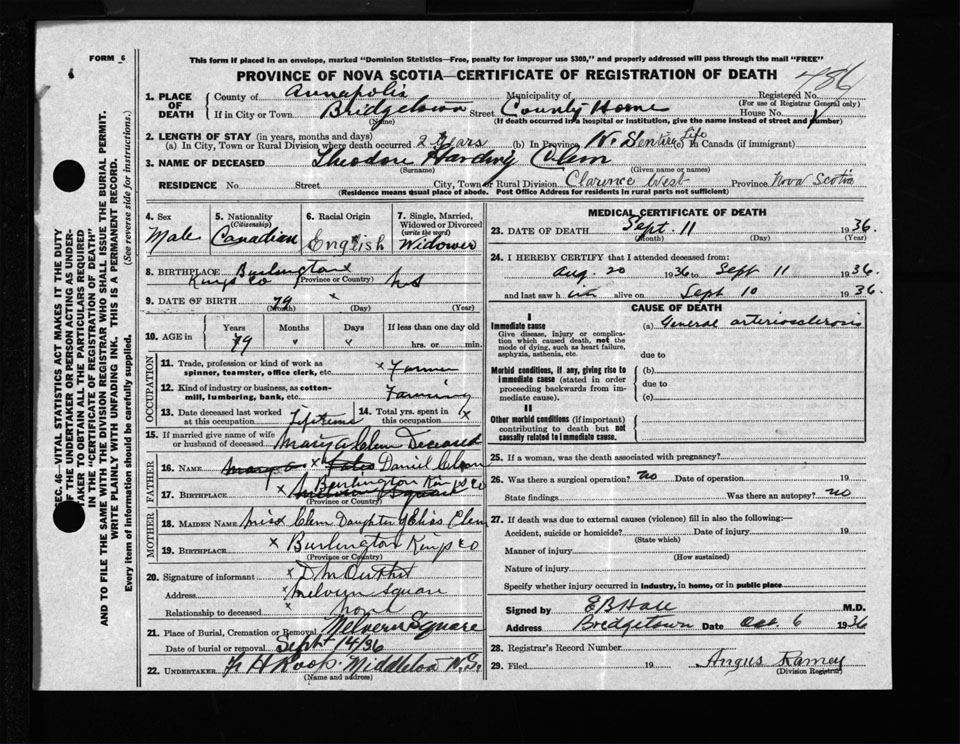 FORM 6
This form if placed in an envelope, marked "Dominion Statistics—Free, penalty for improper use $300," and properly addressed will pass through the mail "FREE"
PROVINCE OF NOVA SCOTIA—CERTIFICATE OF REGISTRATION OF DEATH
486
1. PLACE OF DEATH
County of Annapolis Municipality of Registered No.
(For use of Registrar General only)
If in City or Town Bridgetown Street County Home House No.
(Name) (If death occurred in a hospital or institution, give the name instead of street and number)
2. LENGTH OF STAY (in years, months and days)
(a) In City, Town or Rural Division where death occurred 2 Years (b) In Province (c) In Canada (if immigrant) Life
3. NAME OF DECEASED Theodore Harding Clem
(Surname) (Given name or names)
RESIDENCE No. Street City, Town or Rural Division Clarence West Province Nova Scotia
(Residence means usual place of abode. Post Office Address for residents in rural parts not sufficient)
SEC. 46—VITAL STATISTICS ACT MAKES IT THE DUTY
OF THE UNDERTAKER OR PERSON ACTING AS UNDER-
TAKER TO OBTAIN ALL THE PARTICULARS REQUIRED
IN THE "CERTIFICATE OF REGISTRATION OF DEATH"
AND TO FILE THE SAME WITH THE DIVISION REGISTRAR WHO SHALL ISSUE THE BURIAL PERMIT.
WRITE PLAINLY WITH UNFADING INK. THIS IS A PERMANENT RECORD.
Every item of Information should be carefully supplied. (See reverse side for instructions.)
4. Sex
Male
5. Nationality
(Citizenship)
Canadian
6. Racial Origin
English
7. Single, Married,
Widowed or Divorced
(write the word)
Widower
8. BIRTHPLACE Burlington
Kings Co (Province or Country) NS
9. DATE OF BIRTH 79
(Month) (Day) (Year)
10. AGE in
Years Months Days If less than one day old
79 " " hrs. or min.
OCCUPATION
11. Trade, profession or kind of work as
spinner, teamster, office clerk, etc. x Farmer
12. Kind of industry or business, as cotton-
mill, lumbering, bank, etc. Farming
13. Date deceased last worked
at this occupation Lifetime
14. Total yrs. spent in
this occupation x
15. If married give name of wife
or husband of deceased Mary A Clem Deceased
FATHER
16. NAME x Daniel
17. BIRTHPLACE x Burlington Kings Co
(Province or Country)
MOTHER
18. MAIDEN NAME Miss Clem Daughter of Elias Clem
19. BIRTHPLACE x Burlington Kings Co
(Province or Country)
20. Signature of informant x
Address x Melvern Square
Relationship to deceased x
21. Place of Burial, Cremation or Removal Melvern Square
Date of burial or removal Sept 14/36
22. UNDERTAKER F H Roop. Middleton N.S.
(Name and address)
MEDICAL CERTIFICATE OF DEATH
23. DATE OF DEATH Sept. 11 1936.
(Month) (Day) (Year)
24. I HEREBY CERTIFY that I attended deceased from:
Aug. 20 1936 to Sept 11 1936.
and last saw him alive on Sept 10 1936.
CAUSE OF DEATH
I
Immediate cause
Give disease, injury or complica-
tion which caused death, not the
mode of dying, such as heart failure,
asphyxia, asthenia, etc.
(a) General arteriosclerosis
due to
Morbid conditions, if any, giving rise to
immediate cause (stated in order
proceeding backwards from im-
mediate cause).
(b)
due to
(c)
II
Other morbid conditions (if important)
contributing to death but not
causally related to immediate cause.
25. If a woman, was the death associated with pregnancy?
26. Was there a surgical operation? No Date of operation 19
State findings Was there an autopsy? No
27. If death was due to external causes (violence) fill in also the following:—
Accident, suicide or homicide? Date of injury 19
(State which)
Manner of injury
(How sustained)
Nature of injury
Specify whether injury occurred in industry, in home, or in public place
Signed by E B Hall M.D.
Address Bridgetown Date Oct. 6 1936
28. Registrar's Record Number
29. Filed 19 Angus Ramey
(Division Registrar)